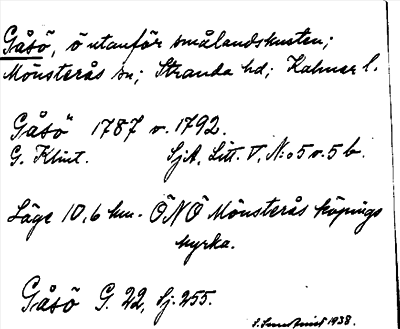 Gåsö, ö utanför smålandskusten;
Mönsterås sn; Stranda hd; Kalmar l.
Gåsö 1787 o. 1792.
G. Klint. SjA, Litt. V, N:o 5 o. 5 b.
Läge 10,6 km. ÖNÖ Mönsterås köpings
kyrka.
Gåsö G. 22, Sj. 255.
1938.